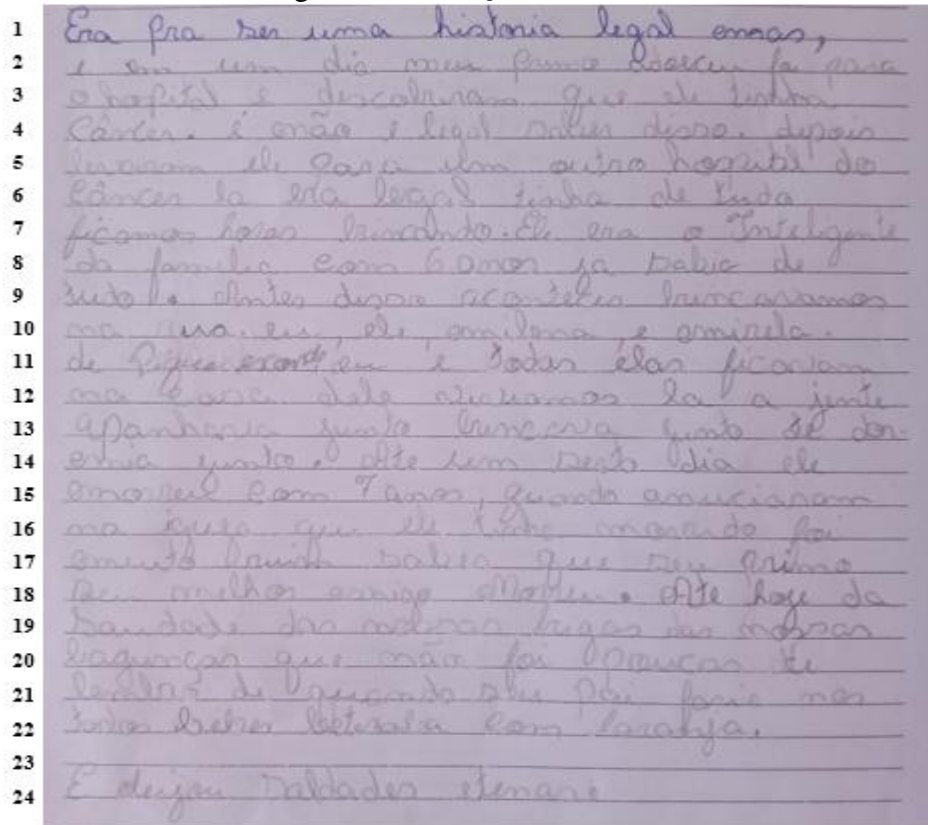 1 Era pra ser uma historia legal emas,
2 e em um dia meu primo adoeceu foi para
3 o hospital e descobriram que ele tinha
4 Câncer. é não e legal saber disso. depois
5 levaram ele para um outro hospital do
6 Câncer la era legal tinha de tudo
7 ficamos horas brincando. Ele era o Inteligente
8 da familia com 6 anos ja sabia de
9 tudo. Antes disso acontecer brincavamos
10 na rua. eu, ele, e
11 de Pique esconde eu e todas elas ficavam
12 na Casa dele la a jente
13 apanhava junto brincava junto dor-
14 mia junto. Ate um serto dia ele
15 morreu com 7 anos, quando anuciaram
16 na igreja que ele tinha morrido foi
17 muito ruim saber que seu primo
18 seu melhor amigo Morreu. Ate hoje da
19 saudade das nossas brigas das nossas
20 bagunças que não foi poucas de
21 lembrar de quando seu pai fazia nos
22 todos beber beteraba com laranja.
23
24 E deixou saldades